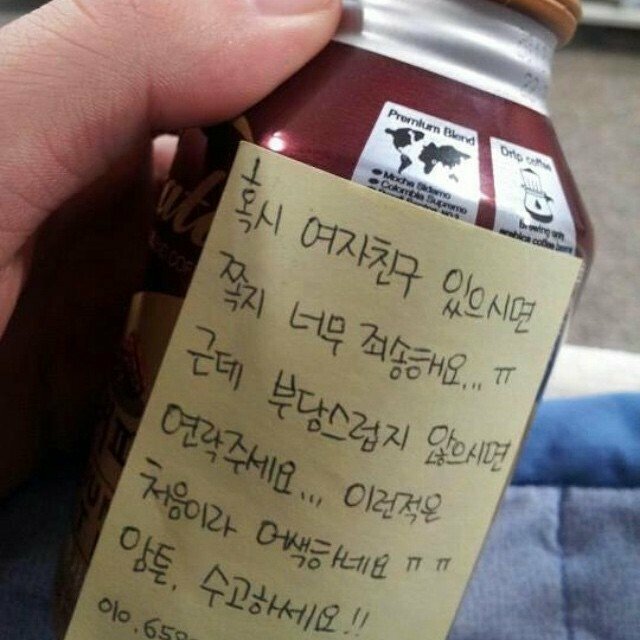 Premium Blend
Drip coffee
혹시 여자친구 있으시면
쪽지 너무 죄송해요... ㅠ
근데 부담스럽지 않으시면
연락주세요... 이런적은
처음이라 어색하네요 ㅠㅠ
암튼, 수고하세요!!
010.659